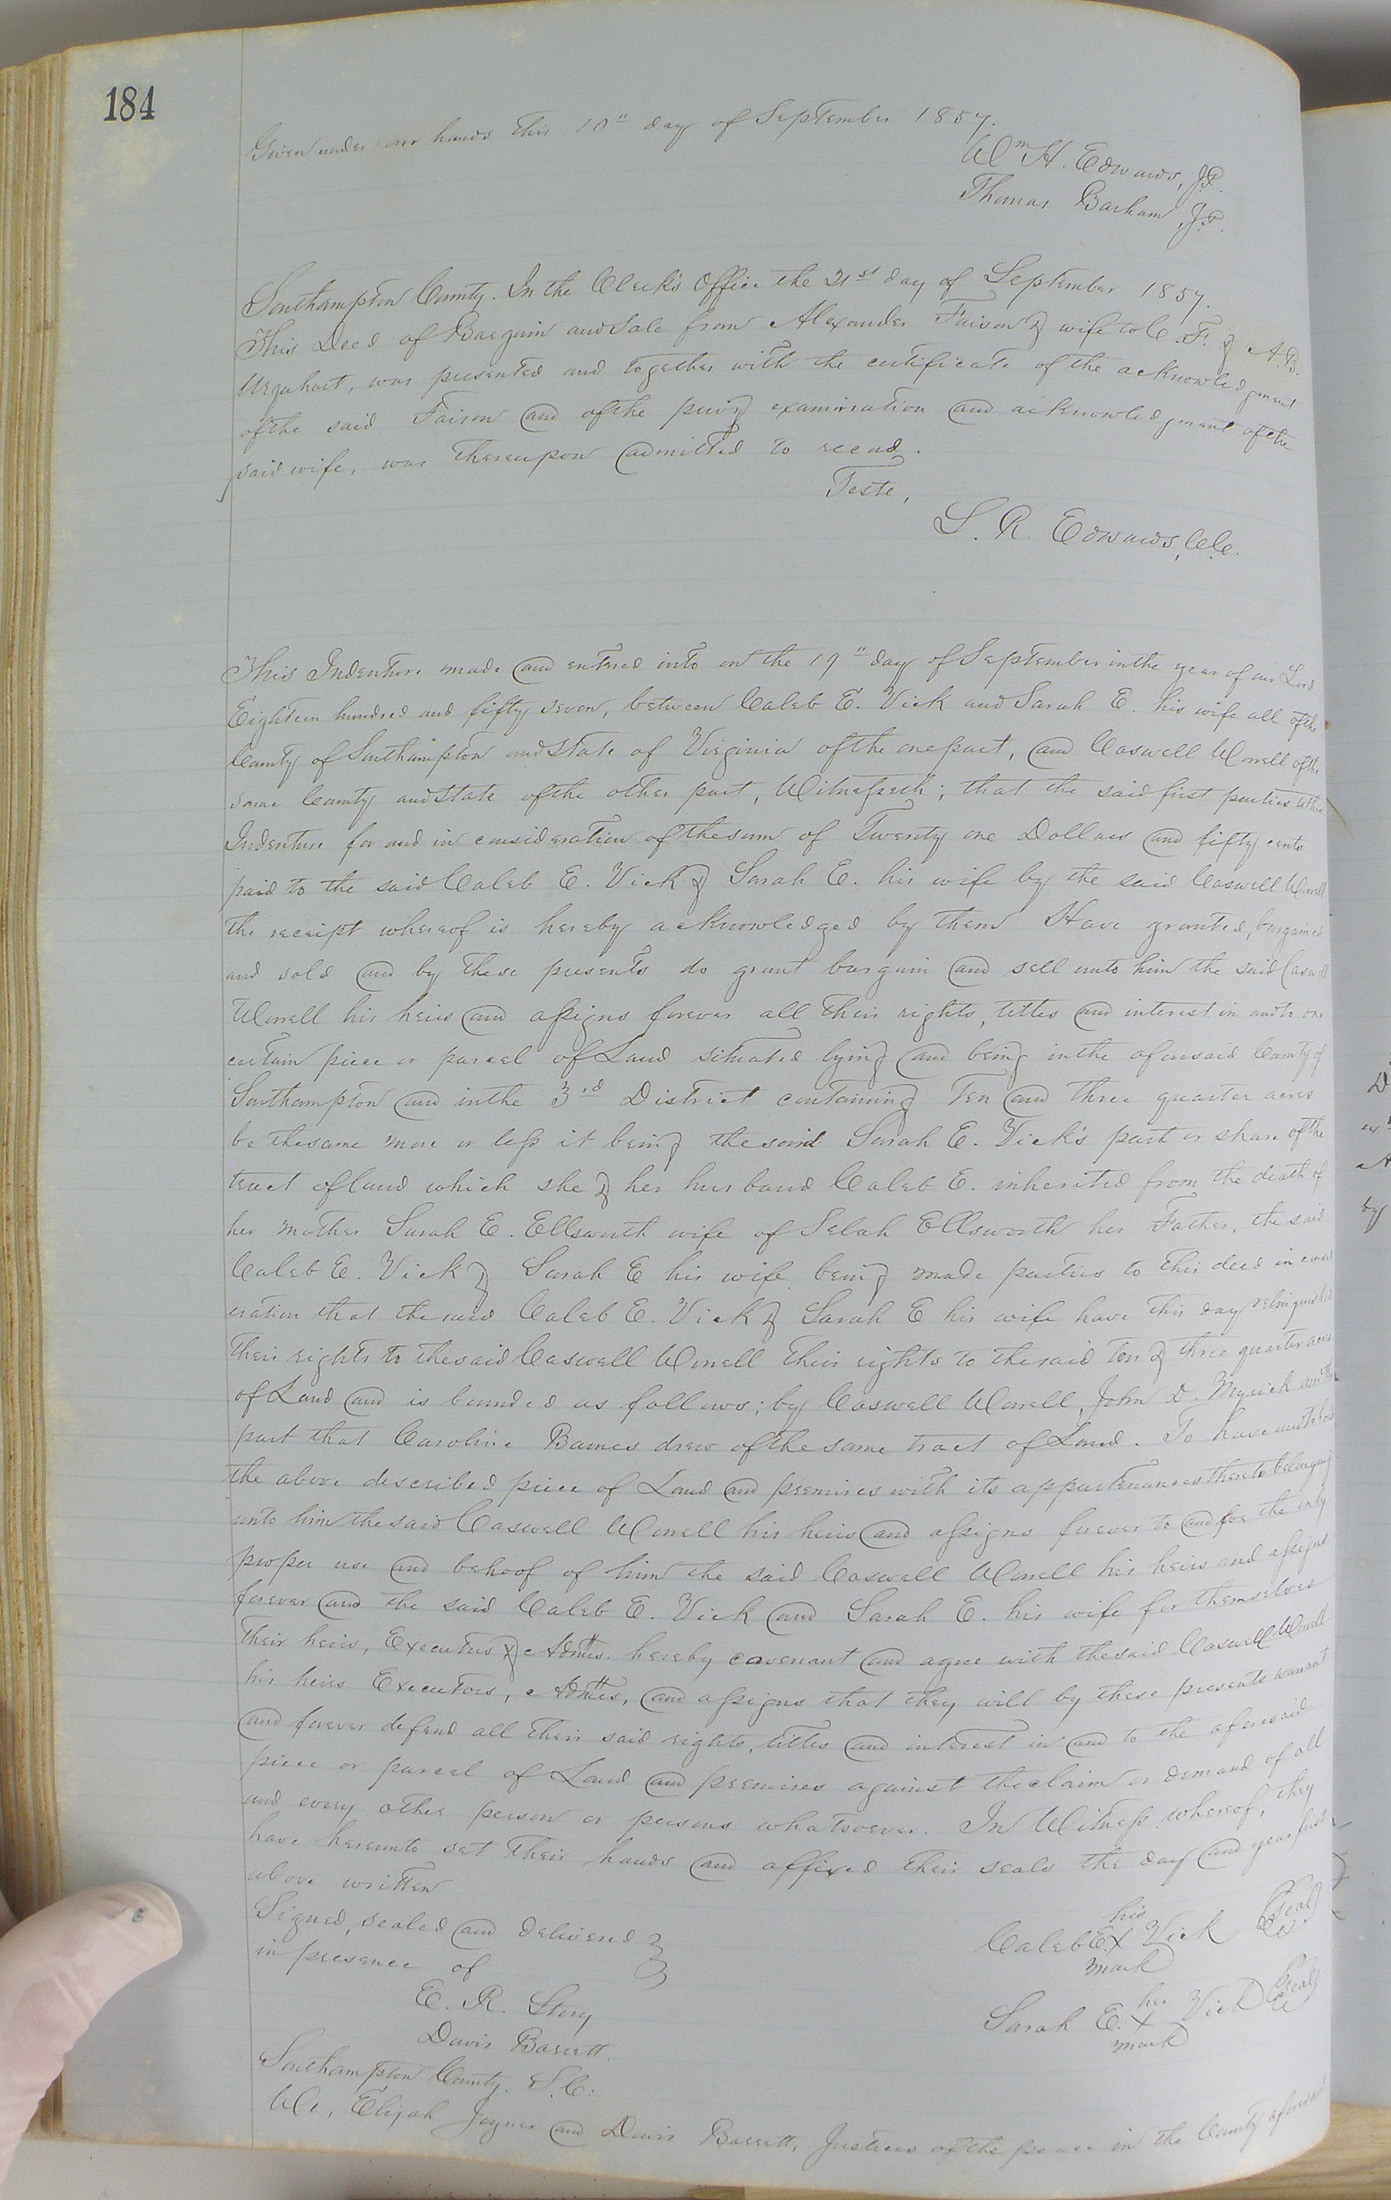 184
Given under our hands this 10" day of September 1857.
Wm H. Edwards, J.P.
Thomas Barham, J.P.
Southampton County. In the Clerk's Office the 21st day of September 1857.
This Deed of Bargain and Sale from Alexander Faison & wife to C. F. & A. B.
Urquhart, was presented and together with the certificate of the acknowledgment
of the said Faison and of the privy examination and acknowledgment of the
said wife, was thereupon admitted to record.
Teste,
L. R. Edwards, C.C.
This Indenture made and entered into on the 19" day of September in the year of our Lord
Eighteen hundred and fifty seven, between Caleb E. Vick and Sarah E. his wife all of the
County of Southampton and State of Virginia of the one part, and Caswell Worrell of the
same County and State of the other part, Witnesseth; that the said first parties to this
Indenture for and in consideration of the sum of Twenty one Dollars and fifty cents
paid to the said Caleb E. Vick & Sarah E. his wife by the said Caswell Worrell
the receipt whereof is hereby acknowledged by them Have granted, bargained
and sold and by these presents do grant bargain and sell unto him the said Caswell
Worrell his heirs and assigns forever all their rights, titles and interest in and to one
certain piece or parcel of Land situated lying and being in the aforesaid County of
Southampton and in the 3rd District containing Ten and three quarter acres
be the same more or less it being the said Sarah E. Vick's part or share of the
tract of land which she & her husband Caleb E. inherited from the death of
her mother Sarah E. Ellsworth wife of Selah Ellsworth her Father, the said
Caleb E. Vick & Sarah E his wife being made parties to this deed in consid
eration that the said Caleb E. Vick & Sarah E his wife have this day relinquished
their rights to the said Caswell Worrell their rights to the said Ten & three quarter acres
of Land and is bounded as follows; by Caswell Worrell, John D. Myrick and the
part that Caroline Barnes drew of the same tract of Land. To have and to hold
the above described piece of Land and premises with its appurtenances thereto belonging
unto him the said Caswell Worrell his heirs and assigns forever to and for the only
proper use and behoof of him the said Caswell Worrell his heirs and assigns
forever and the said Caleb E. Vick and Sarah E. his wife for themselves
their heirs, Executors & Admtrs. hereby covenant and agree with the said Caswell Worrell
his heirs Executors, Admtrs, and assigns that they will by these presents warrant
and forever defend all their said rights, titles and interest in and to the aforesaid
piece or parcel of Land and premises against the claim or demand of all
and every other person or persons whatsoever. In Witness whereof, they
have hereunto set their hands and affixed their seals the day and year first
above written
Signed, sealed and delivered
in presence of
E. R. Story
Davis Barrett
his
Caleb E. X Vick Seal
mark
her
Sarah E. X Vick Seal
mark
Southampton County. S.C:
We, Elijah Joyner and Davis Barrett, Justices of the peace in the County aforesaid